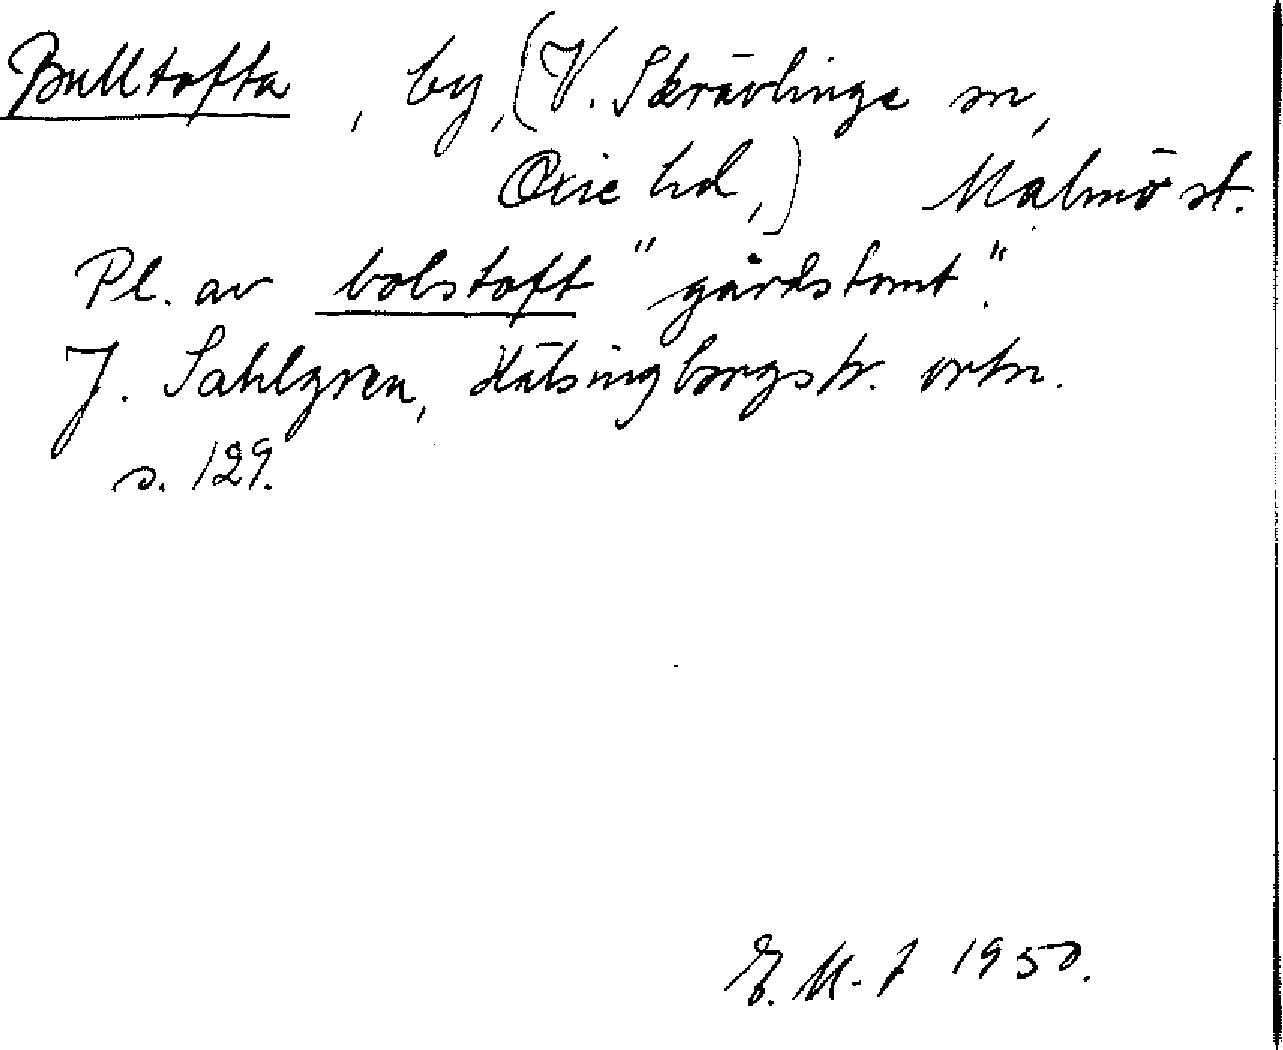 Bulltofta, by, (V. Skrävlinge sn,
Oxie hd,) Malmö st.
Pl. av bolstoft "gårdstomt".
J. Sahlgren, Hälsingborgstr. ortn.
s. 129.
E. M-f 1950.